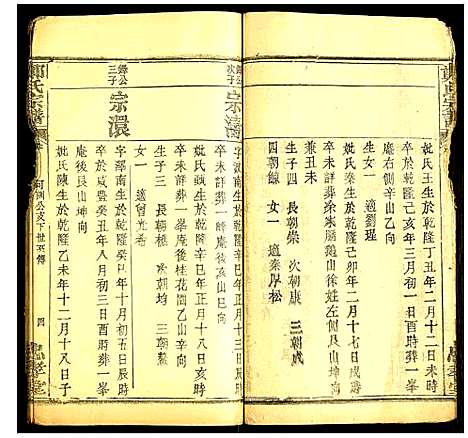 妣氏王生於乾隆丁丑年二月十二日未時
卒於乾隆己亥年三月初一日時葬一峯
庵右側辛山乙向
生女一 適劉瑆
妣氏徐生於乾隆己卯年二月十七日戌時
卒未詳葬涂家腦鷄山徐姓左側艮山坤向
兼丑未
生子四 長朝榮 次朝康 三朝成
四朝鯨 女一 適秦厚松
錦公次子 宗濤
字 南生於乾隆年正月十六日亥時
卒未詳葬一峰庵後亥山巳向
妣氏 生於乾隆辛巳年正月十八日亥時
卒未詳葬一峯庵後桂花園乙山辛向
生子三 長朝極 次朝均 三朝鰲
女一 適曾光
錦公三子 宗濃
字澤南生於乾隆癸巳年十月初五日辰時
卒於咸豊癸丑年八月初三日酉時葬一峯
庵後艮山坤向
妣氏陳生於乾隆乙未年十二月十八日子
鄭氏宗譜
公支下世系傳
四